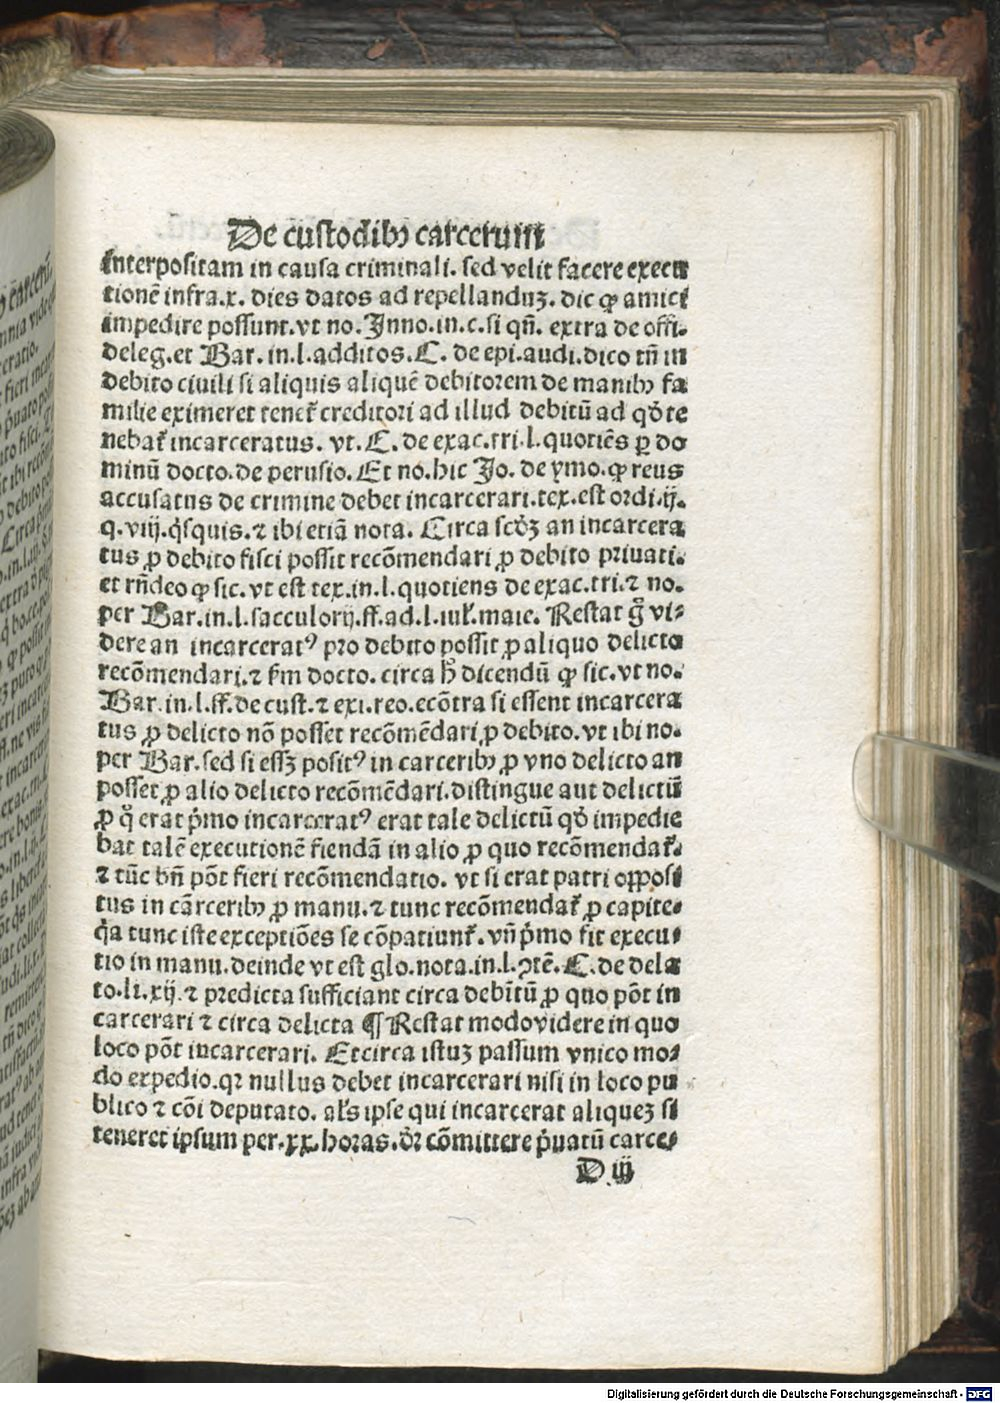 De custodibꝰ carcerum
interpositam in causa criminali. sed velit facere execu
tionē infra.x. dies datos ad repellanduꝫ. dic ꝙ amici
impedire possunt.vt no.Inno.in.c.si qn̄. extra de offi.
deleg.et Bar.in.l.additos.C. de epi.audi.dico tn̄ in
debito ciuili si aliquis aliquē debitorem de manibꝰ fa
milie eximeret tenet᷑ creditori ad illud debitū ad qd̓ te
nebat᷑ incarceratus. vt.C.de exac.tri.l.quotiēs ꝑ do
minū docto.de perusio. Et no.hic Jo.de ymo.ꝙ reus
accusatus de crimine debet incarcerari.tex.est ordi.ij.
q.viij.q̇squis.⁊ ibi etiā nota. Circa scd̓ꝫ an incarcera
tus ꝓ debito fisci possit recōmendari ꝓ debito priuati.
et rn̄deo ꝙ sic. vt est tex.in.l.quotiens de exac.tri.⁊ no.
per Bar.in.l.sacculorij.ff.ad.l.iul᷑.maie. Restat gͦ vi⸗
dere an incarceratꝰ pro debito possit ꝓ aliquo delicto
recōmendari.⁊ ẜm docto. circa h̄ dicendū ꝙ sic.vt no.
Bar.in.l.ff.de cust.⁊ exi.reo.ecōtra si essent incarcera
tus ꝓ delicto nō posset recōmēdari ꝓ debito.vt ibi no.
per Bar.sed si esſꝫ positꝰ in carceribꝰ ꝓ vno delicto an
posset ꝓ alio delicto recōmēdari.distingue aut delictū
ꝓ qͦ erat p̓mo incarceratꝰ erat tale delictū qd̓ impedie
bat talē executionē fiendā in alio ꝓ quo recōmendat᷑.
⁊ tūc bn̄ pōt fieri recōmendatio. vt si erat patri opposi
tus in cārceribꝰ ꝓ manu.⁊ tunc recōmendat᷑ ꝓ capite.
q̇a tunc iste exceptiōes se cōpatiunt᷑. vn̄ p̓mo fit execu⸗
tio in manu.deinde vt est glo.nota.in.l.ꝯtē.C.de dela
to.li.xij.⁊ predicta sufficiant circa debitū ꝓ quo pōt in
carcerari ⁊ circa delicta ¶ Restat modo videre in quo
loco pōt incarcerari. Et circa istuꝫ passum vnico mo⸗
do expedio.qꝛ nullus debet incarcerari nisi in loco pu
blico ⁊ cōi deputato. al̓s ipse qui incarcerat aliqueꝫ si
teneret ipsum per.xx.horas.dr̄ cōmittere p̓uatū carce⸗
D iij
Digitalisierung gefördert durch die Deutsche Forschungsgemeinschaft - DFG